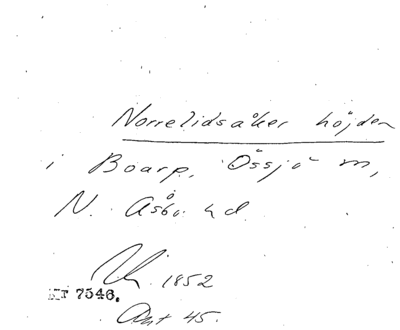 Norrelidsåker höjden
i Boarp, Össjö m,
N. Åsbo hd
1852
Nr 7546.
Ant 45.